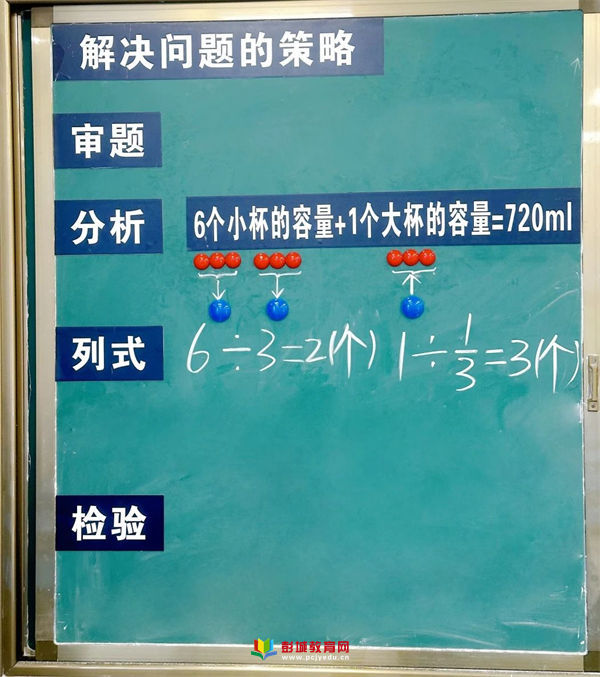 解决问题的策略
审题
分析
6个小杯的容量+1个大杯的容量=720ml
列式
6÷3=2(个) 1÷1/3=3(个)
检验
彭城教育网
www.pcjyedu.cn